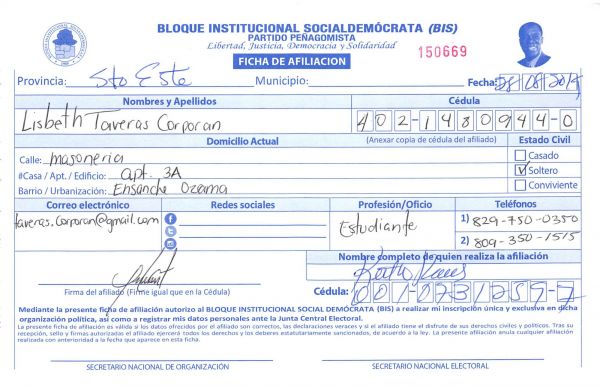 BLOQUE INSTITUCIONAL SOCIALDEMÓCRATA (BIS)
PARTIDO PEÑAGOMISTA
Libertad, Justicia, Democracia y Solidaridad
FICHA DE AFILIACION
150669
Provincia: Sto Este Municipio: Fecha:
Nombres y Apellidos Cédula
Lisbeth Taveras Corporan 402-1480944-0
Domicilio Actual (Anexar copia de cédula del afiliado) Estado Civil
Calle: masoneria Casado
#Casa / Apt. / Edificio: apt. 3A Soltero
Barrio / Urbanización: Ensanche Ozama Conviviente
Correo electrónico Redes sociales Profesión/Oficio Teléfonos
taveras.corporan@gmail.com Estudiante 1) 829-750-0350
2) 809-350-1515
Nombre completo de quien realiza la afiliación
Firma del afiliado (Firme igual que en la Cédula) Cédula: 001-0731259-7
Mediante la presente ficha de afiliación autorizo al BLOQUE INSTITUCIONAL SOCIAL DEMÓCRATA (BIS) a realizar mi inscripción única y exclusiva en dicha
organización política, así como a registrar mis datos personales ante la Junta Central Electoral.
La presente ficha de afiliación es válida si los datos ofrecidos por el afiliado son correctos, las declaraciones veraces y si el afiliado tiene el disfrute de sus derechos civiles y políticos. Tras su
recepción, sello y firmas autorizadas el afiliado ejercerá todos los derechos y los deberes estatutariamente sancionados, de acuerdo a la ley. La presente afiliación anula cualquier afiliación
realizada con anterioridad a la fecha que aparece en esta ficha.
SECRETARIO NACIONAL DE ORGANIZACIÓN SECRETARIO NACIONAL ELECTORAL